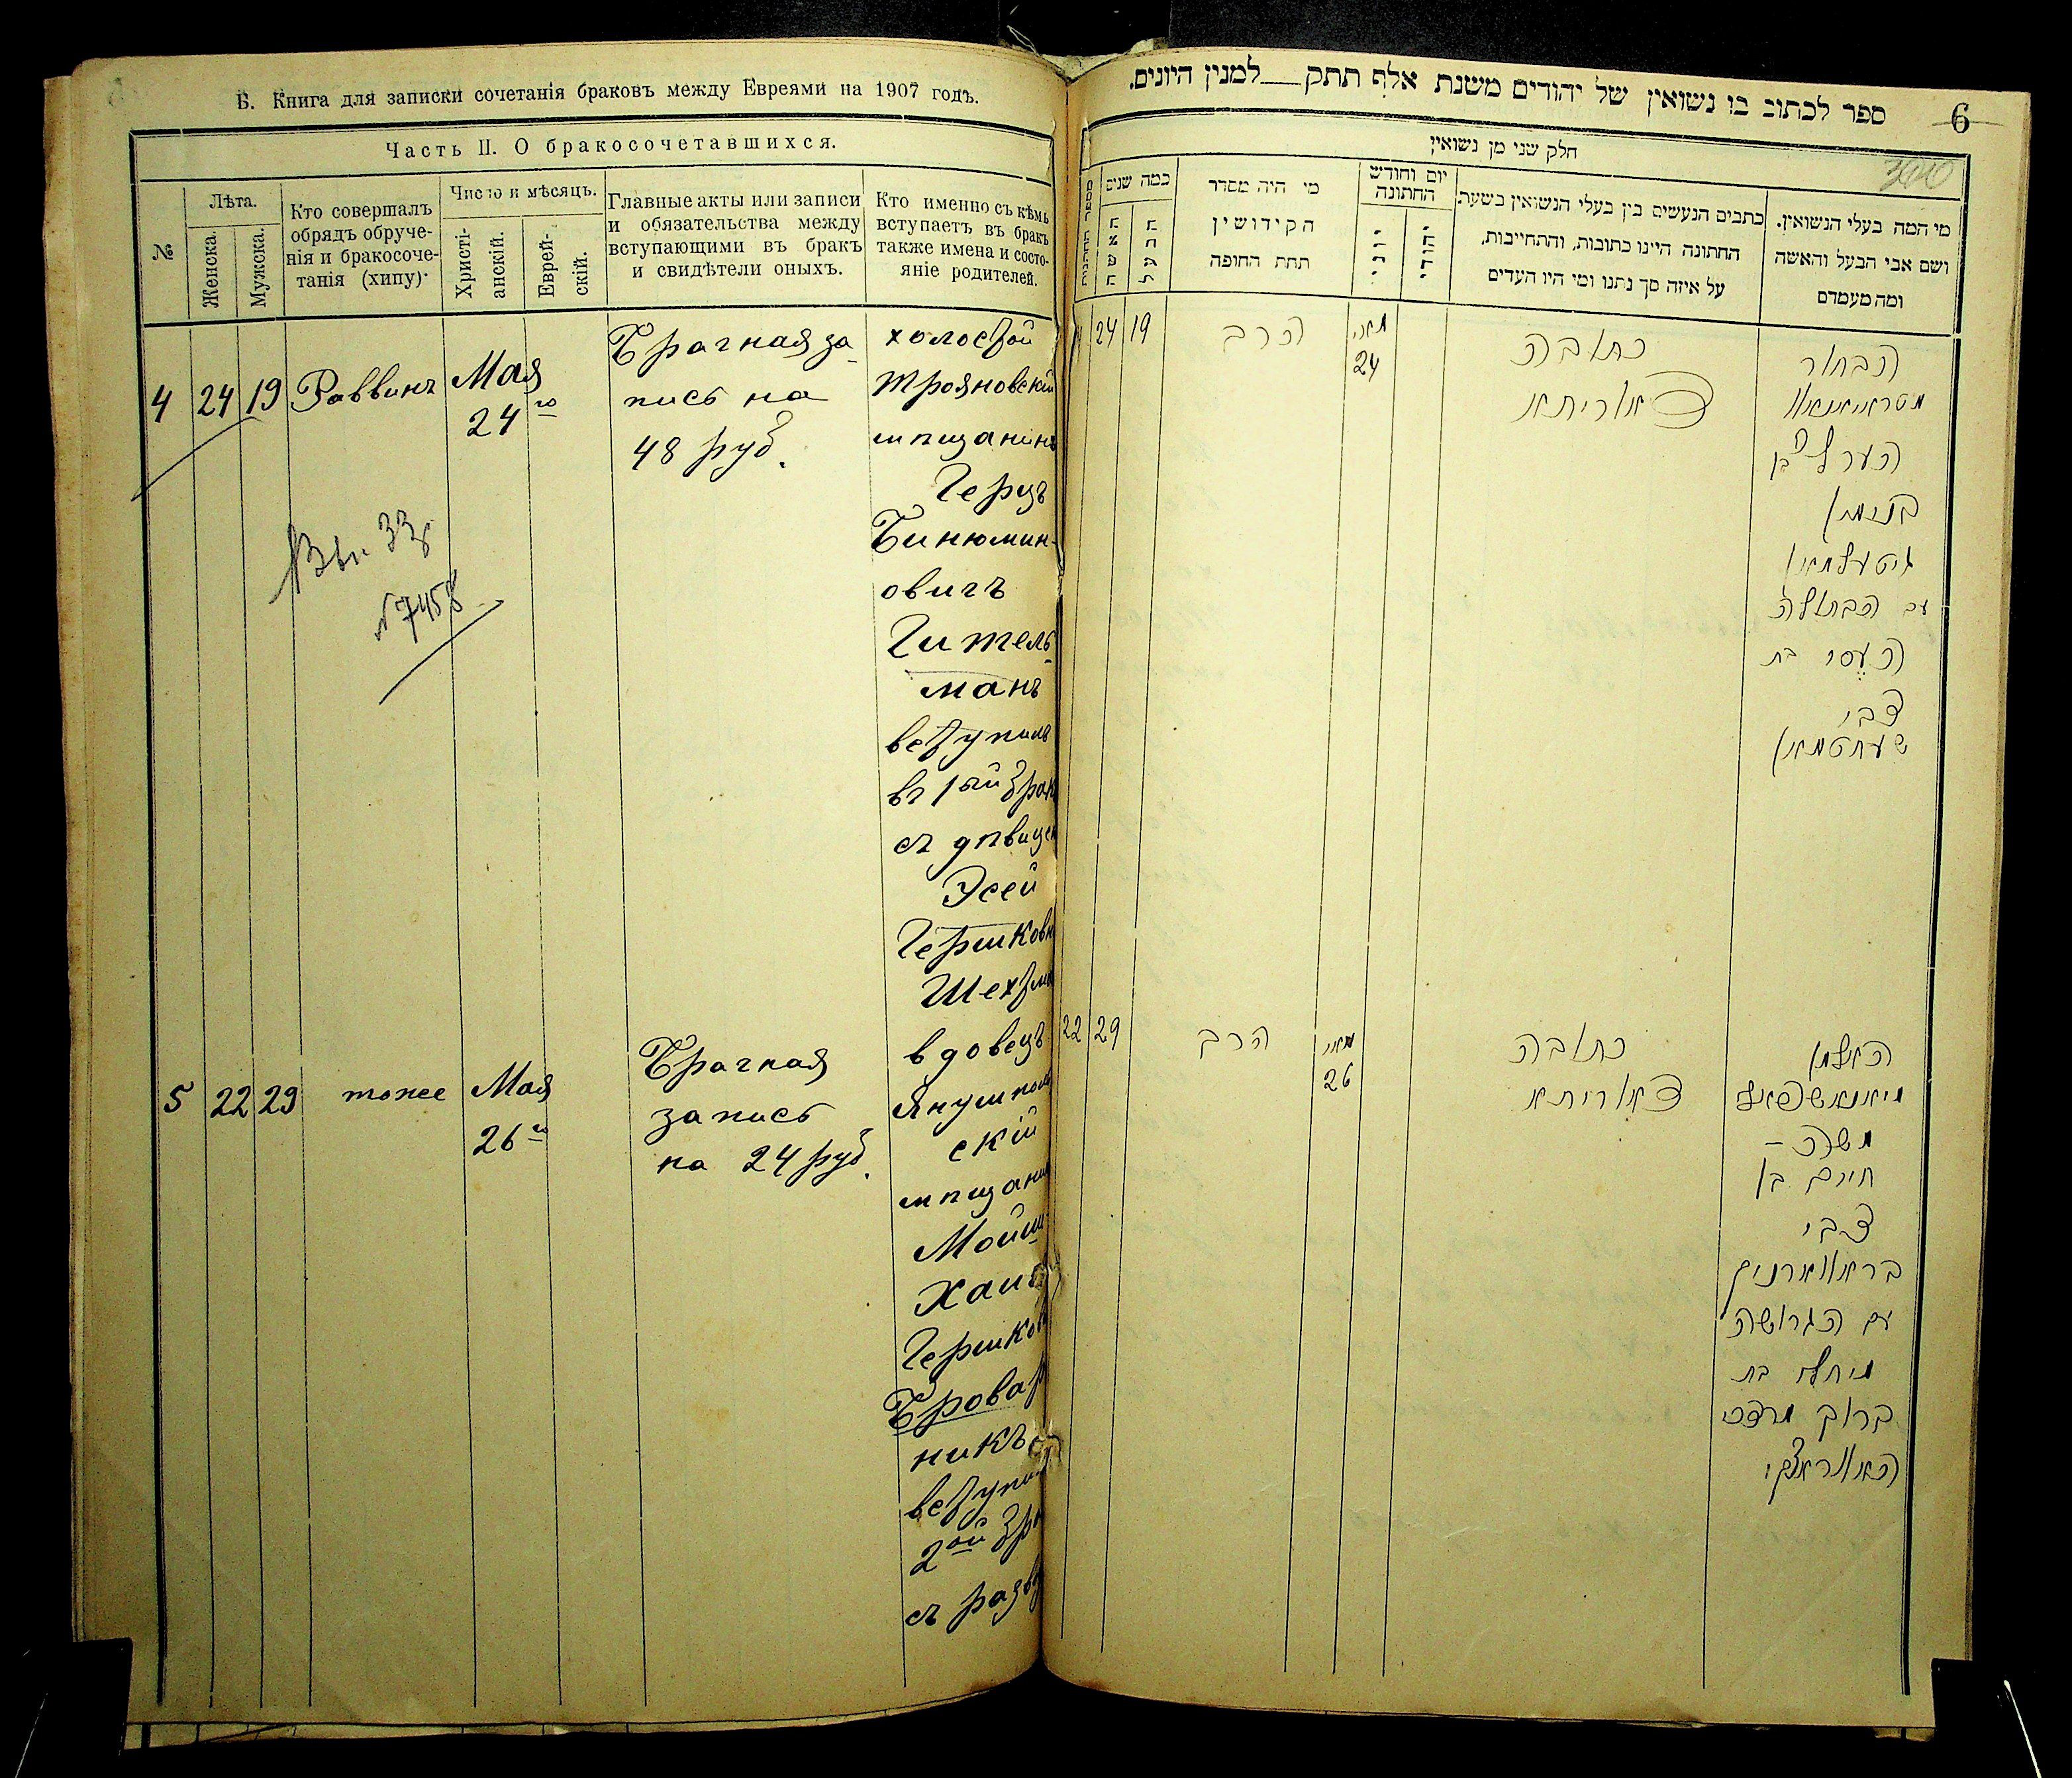 Б. Книга для записки сочетанія браковъ между Евреями на 1907 годъ.
Часть II. О бракосочетавшихся.
№
Лѣта.
Женска.
Мужска.
Кто совершалъ
обрядъ обруче-
нія и бракосоче-
танія (хипу)·
Число и мѣсяцъ.
Христі-
анскій.
Еврей-
скій.
Главные акты или записи
и обязательства между
вступающими въ бракъ
и свидѣтели оныхъ.
Кто именно съ кѣмъ
вступаетъ въ бракъ
также имена и состо-
яніе родителей.
4
24
19
Раввинъ
Мая
24го
Брачная за-
пись на
48 руб.
холостой
Трояновскій
мѣщанинъ
Герцъ
Бинюмин-
овичъ
Гитель-
манъ
вступилъ
въ 1ый бракъ
съ дѣвицей
Эсей
Гершковн
Шехтман
№ 7458
5
22
29
тоже
Мая
26го
Брачная
запись
на 24 руб.
вдовецъ
Янушполь
скій
мѣщанин
Мойш
Хаим
Гершков
Бровар
никъ
вступил
2ой бра
съ разв
ספר לכתוב בו נשואין של יהודים משנת אלף תתק — למנין היונים.
6
חלק שני מן נשואין
מספר החתונות
כמה שנים
האשה
הבעל
מי היה מסדר
הקידושין
תחת החופה
יום וחודש
החתונה
יוני
יהודי
כתבים הנעשים בין בעלי הנשואין בשעת
החתונה היינו כתובות, והתחייבות,
על איזה סך נתנו ומי היו העדים
מי המה בעלי הנשואין.
ושם אבי הבעל והאשה
ומה מעמדם
24
19
הרב
מאי
24
כתובה
דאוריתא
הבחור
הערץ בן
בנימן
גיטעלמאן
עם הבתולה
העסי בת
צבי
שעחטמאן
22
29
הרב
מאי
26
כתובה
דאוריתא
האלמן
יאנאשפאל
משה -
חיים בן
צבי
בראווארניק
עם הגרושה
מיחלי בת
ברוך מרדכי